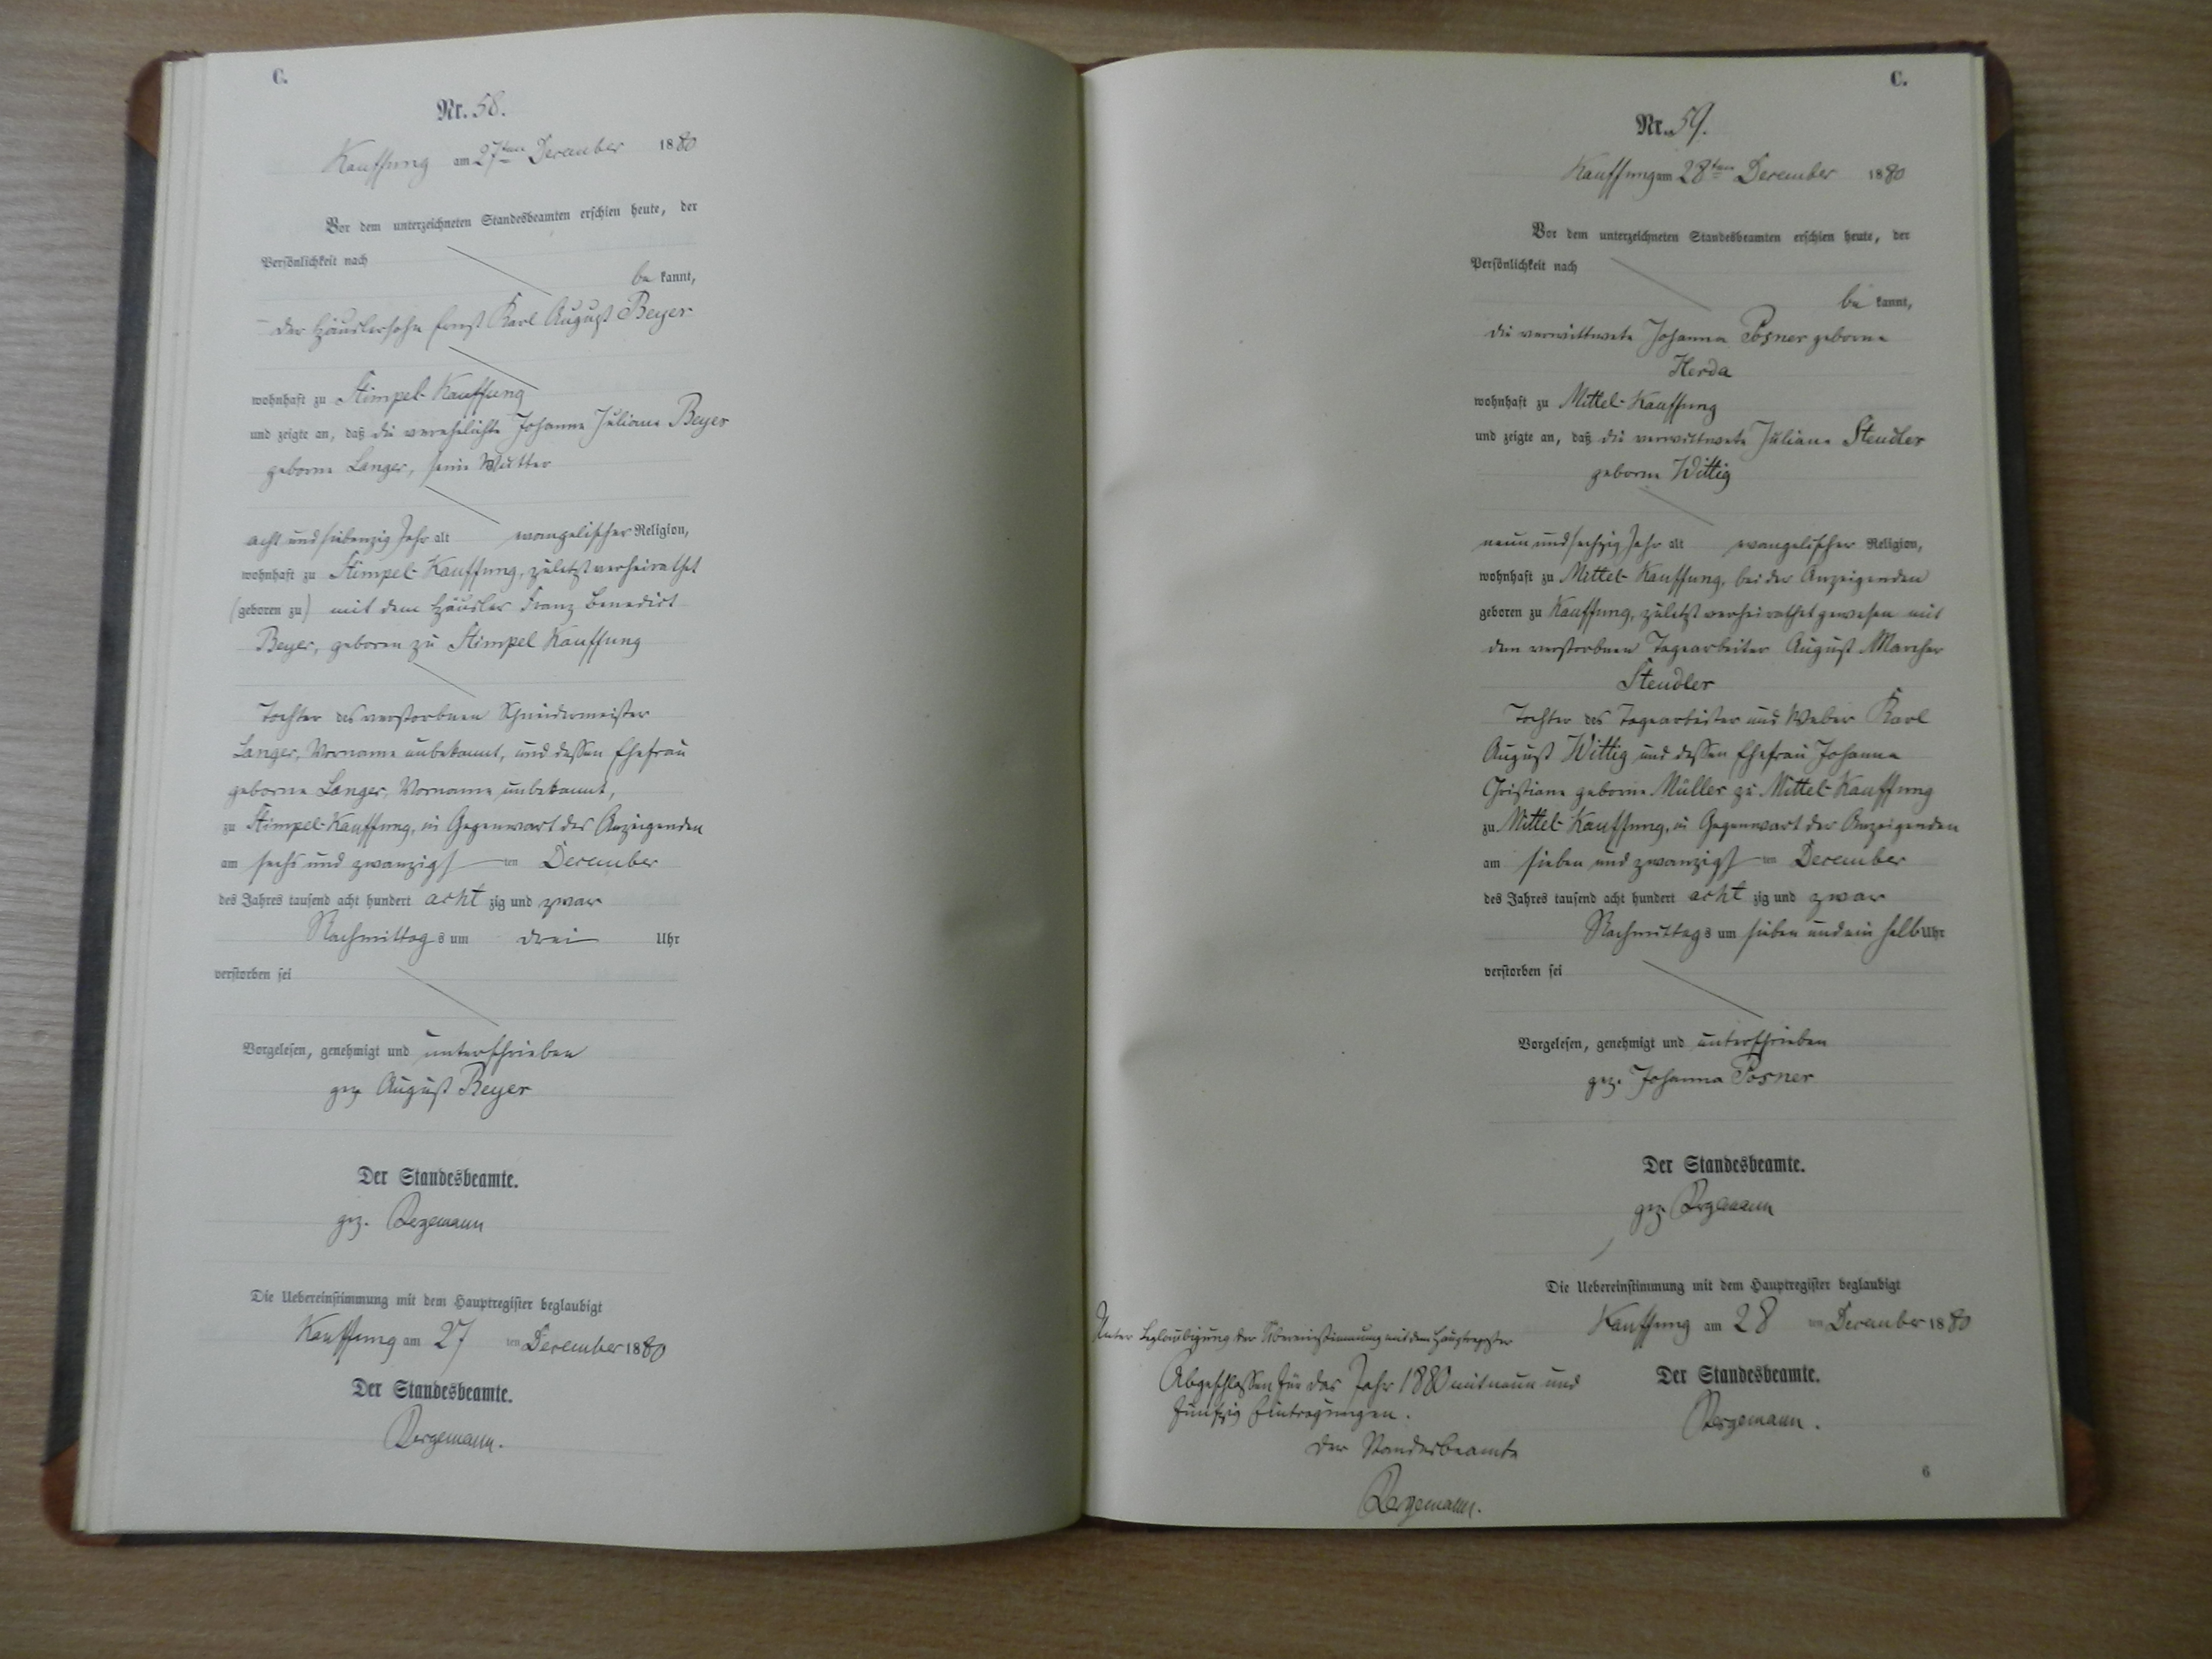 C.
Nr. 58.
Kauffung am 27ten December 1880
Vor dem unterzeichneten Standesbeamten erschien heute, der
Persönlichkeit nach
be kannt,
der Häuslersohn Ernst Karl August Beyer
wohnhaft zu Stimpel-Kauffung
und zeigte an, daß die verehelichte Johanne Juliane Beyer
geborne Langer, seine Mutter
acht und siebenzig Jahr alt evangelischer Religion,
wohnhaft zu Stimpel-Kauffung, zuletzt verheirathet
(geboren zu) mit dem Häusler Franz Benedict
Beyer, geboren zu Stimpel Kauffung
Tochter des verstorbnen Schneidermeister
Langer, Vorname unbekannt, und dessen Ehefrau
geborne Langer, Vorname unbekannt,
zu Stimpel-Kauffung, in Gegenwart des Anzeigenden
am sechs und zwanzigs ten December
des Jahres tausend acht hundert acht zig und zwar
Nachmittag s um drei Uhr
verstorben sei
Vorgelesen, genehmigt und unterschrieben
gez August Beyer
Der Standesbeamte.
gez. Bergemann
Die Uebereinstimmung mit dem Hauptregister beglaubigt
Kauffung am 27 ten December 1880
Der Standesbeamte.
Bergemann.
C.
Nr. 59.
Kauffung am 28ten December 1880
Vor dem unterzeichneten Standesbeamten erschien heute, der
Persönlichkeit nach
be kannt,
die verwittwete Johanna Posner geborne
Herda
wohnhaft zu Mittel-Kauffung
und zeigte an, daß die verwittwete Juliane Steudler
geborne Wittig
neun und sechzig Jahr alt evangelischer Religion,
wohnhaft zu Mittel-Kauffung, bei der Anzeigenden
geboren zu Kauffung, zuletzt verheirathet gewesen mit
dem verstorbnen Tagearbeiter August
Steudler
Tochter des Tagearbeiter und Weber Karl
August Wittig und dessen Ehefrau Johanne
Christiane geborne Müller zu Mittel-Kauffung
zu Mittel-Kauffung, in Gegenwart der Anzeigenden
am sieben und zwanzigs ten December
des Jahres tausend acht hundert acht zig und zwar
Nachmittag s um sieben und ein halb Uhr
verstorben sei
Vorgelesen, genehmigt und unterschrieben
gez. Johanna Posner
Der Standesbeamte.
gez. Bergemann
Die Uebereinstimmung mit dem Hauptregister beglaubigt
Kauffung am 28 ten December 1880
Der Standesbeamte.
Bergemann.
Unter Beglaubigung der Übereinstimmung mit dem Hauptregister
Abgeschlossen für das Jahr 1880 mit neun und
fünfzig Eintragungen.
Der Standesbeamte
Bergemann.
6